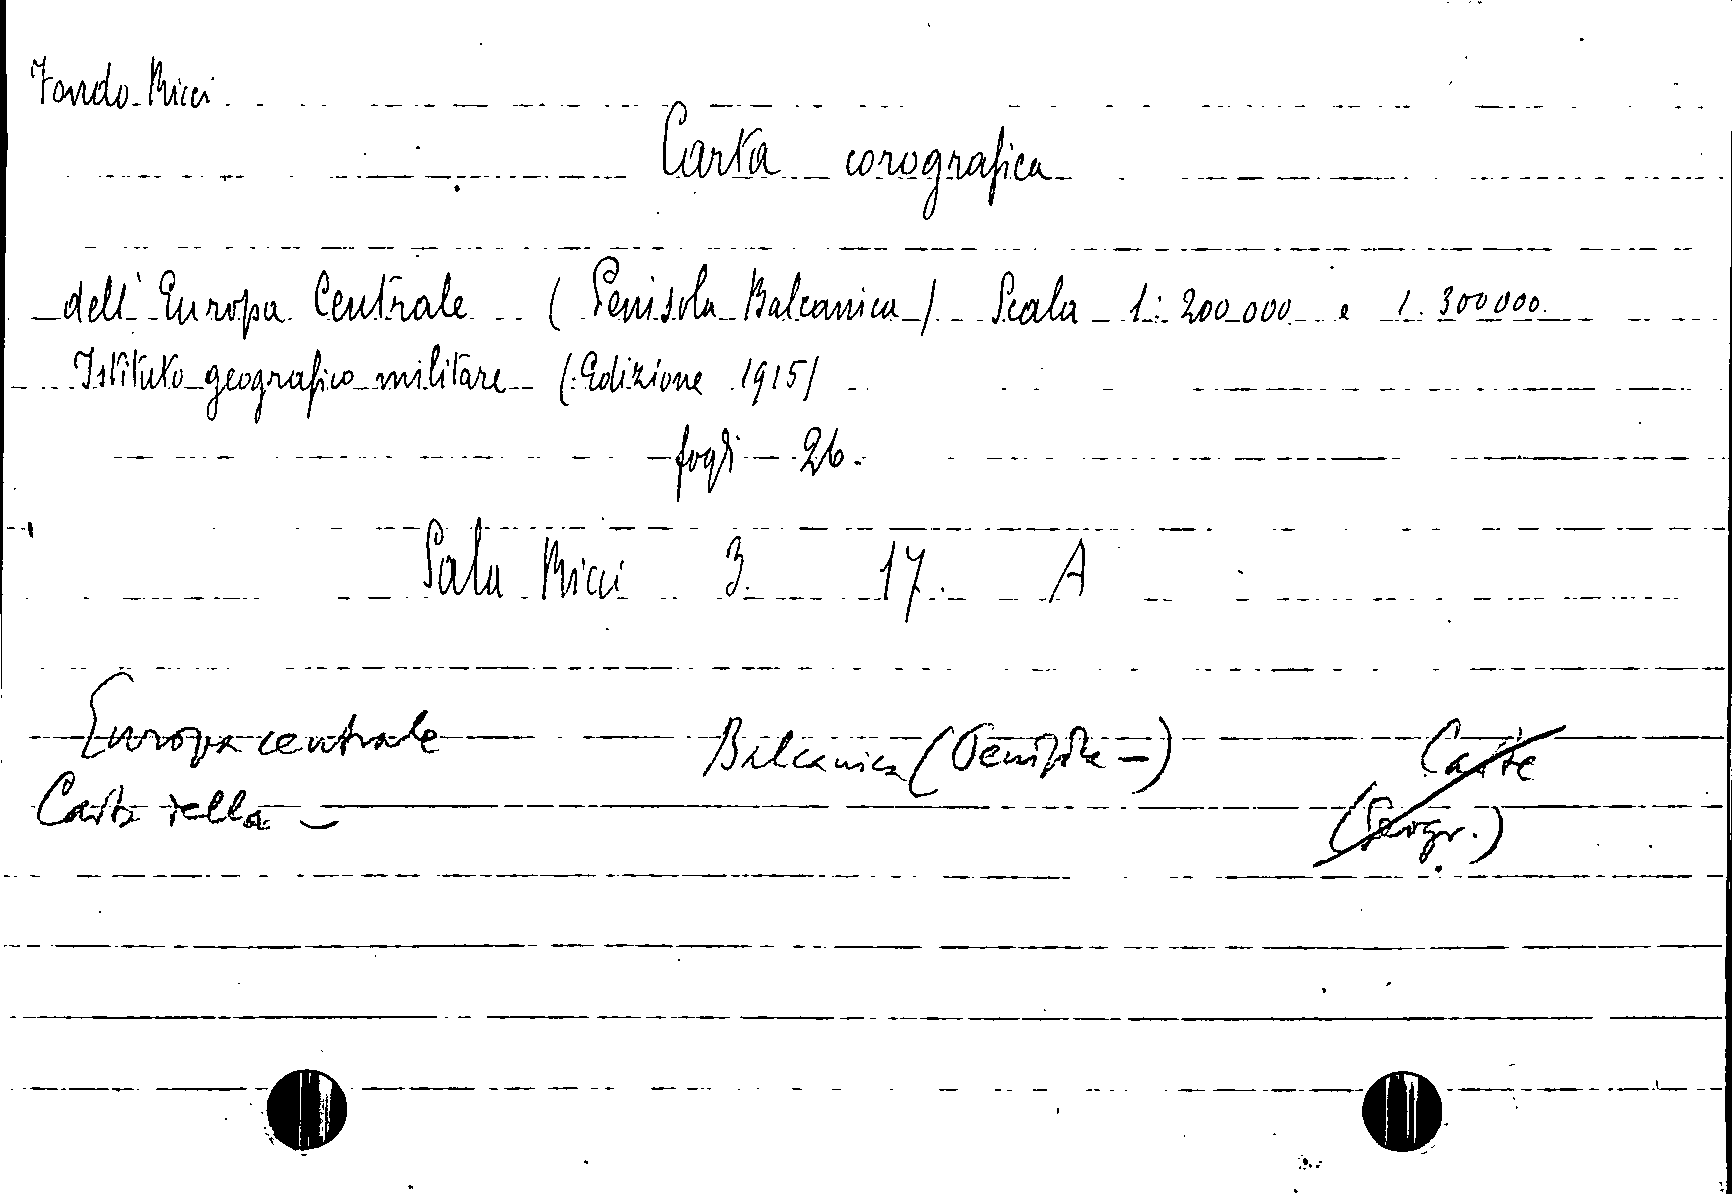 Fondo Ricci
Carta corografica
dell'Europa Centrale (Penisola Balcanica) Scala 1:200.000 e 1.300000.
Istituto geografico militare (Edizione 1915)
fogli 26.
Sala Ricci 3. 17. A
Europa centrale Balcanica (Penisola -) Carte
Carta della - (Geogr.)